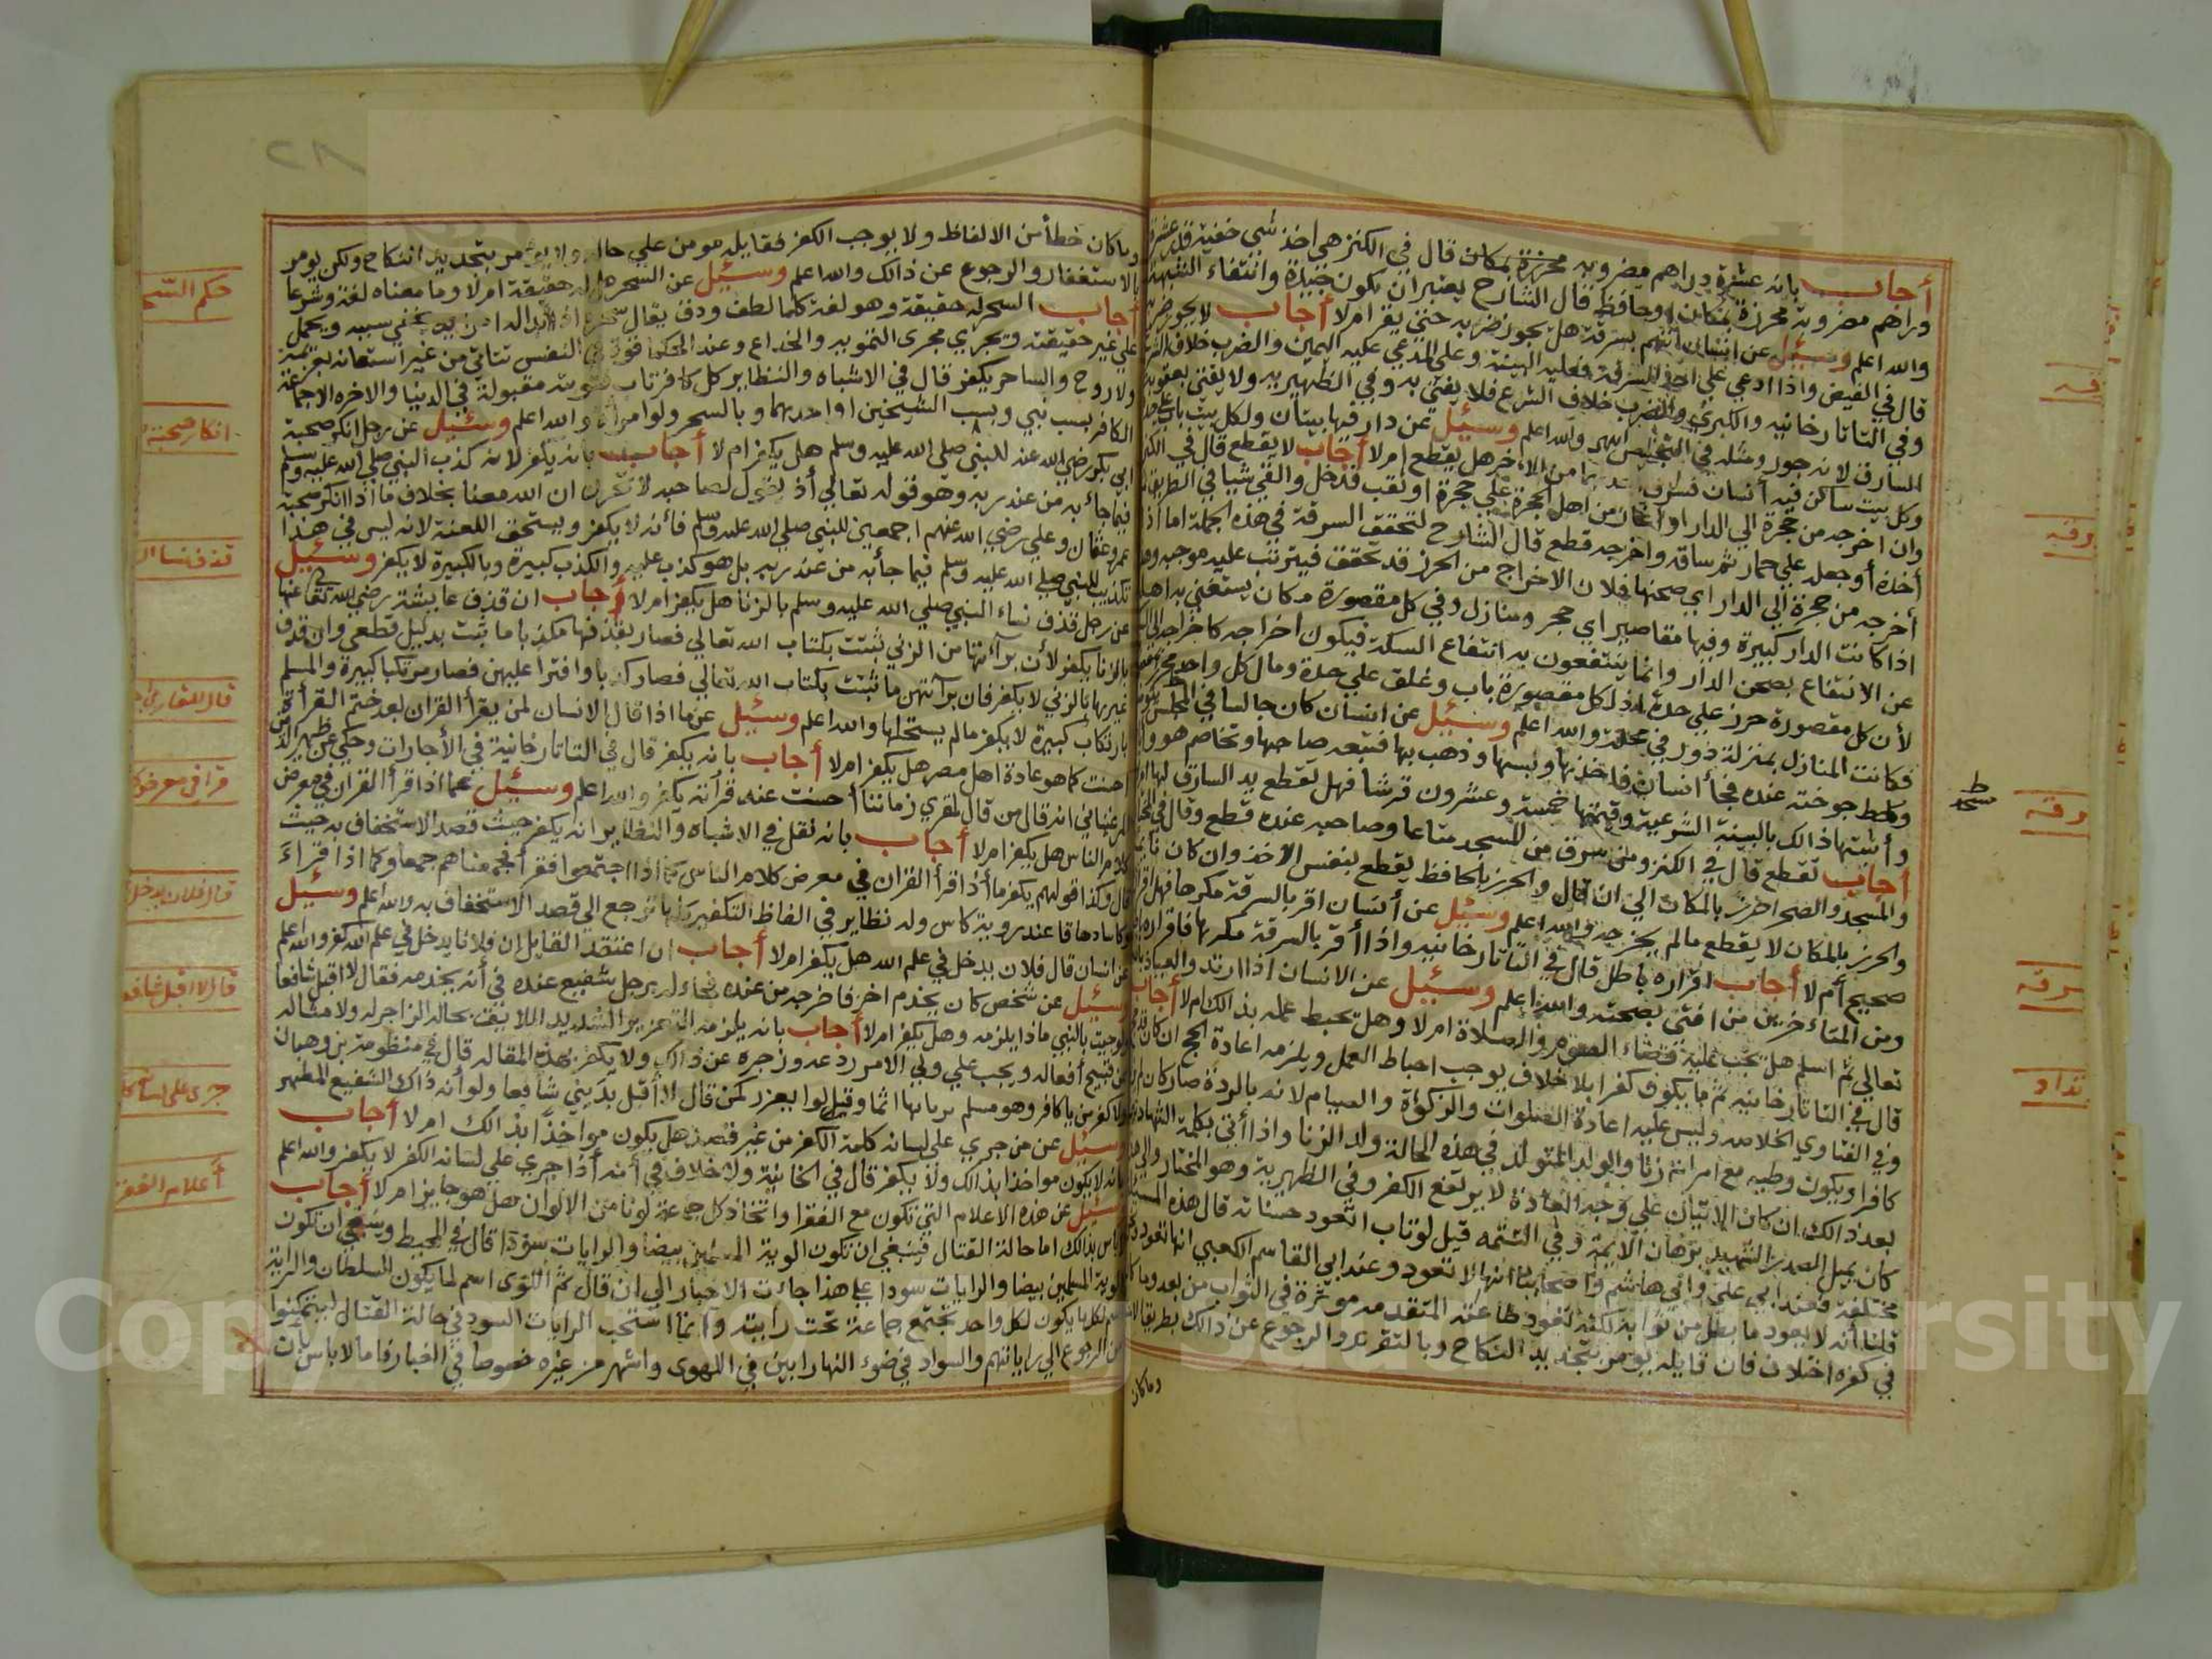 أجاب بانه عشرة دراهم مضروبه محرزة بمكان قال في الكنز هي اخذ شي خفية قدر عشرة
دراهم مضروبة محرزة بمكان او حافظ قال الشارح يعتبر ان يكون جيدة وانتفاء الشبهة
والله اعلم وسئيل عن انسان اتهم بسرقة هل يجوز ضربه حتي يقر امرلا أجاب لا يجوز ضربه
قال في الفيض واذا ادعي علي اخذ السرقة فعليه البينة وعلي المدعي عليه اليمين والضرب خلاف الشرع
وفي التاتارخانيه والكبري والضرب خلاف الشرع فلا يفتي به وفي الظهيريه ولا يفتي بعقوبة
السارق لانه جور ومثله في التجنيس انتهي والله اعلم وسئيل عن دار فيها بيتان ولكل بيت باب علي حدة
وكل بيت ساكن فيه أنسان فسرق احدهما من الاخر هل يقطع امرلا أجاب لا يقطع قال في الكنز
وان اخرجه من حجرة الي الدار او اغار من اهل الحجرة علي حجرة او نقب فدخل والقي شيا في الطريق ثم
أخذه أو جعله علي حمار ثم ساقه واخرجه قطع قال الشارح لتحقق السرقة في هذه الجملة اما اذا
أخرجه من حجرة الي الدار اي صحنها فلان الاخراج من الحرز قد تحقق فيترتب عليه موجبه وهذا
اذا كانت الدار كبيرة وفيها مقاصير اي حجر ومنازل وفي كل مقصورة مكان يستغني به اهله
عن الانتفاع بصحن الدار وانما ينتفعون به انتفاع السكة فيكون اخراجه كاخراجه الي السكة
لأن كل مقصورة حرز علي حدة اذ لكل مقصورة باب وغلق علي حدة ومال كل واحد محرز بمقصورته
فكانت المنازل بمنزلة دور في محلة والله اعلم وسئيل عن انسان كان جالسا في المجلس
وحط جوخته عنده فجأ أنسان فاخذها ولبسها وذهب بها فتبعه صاحبها وتخاصم هو واياه
وأثبتها ذالك بالبينة الشرعية وقيمتها خمسة وعشرون قرشا فهل تقطع يد السارق لها امرلا
أجاب تقطع قال في الكنز ومن سرق من المسجد متاعا وصاحبه عنده قطع وقال في
والمسجد والصحرا حرز بالمكان الي ان قال والحرز بالحافظ يقطع بنفس الاخذ وان كان نايما
والحرز بالمكان لا يقطع مالم يخرجه والله اعلم وسئيل عن أنسان اقر بالسرقة مكرها فهل اقراره
صحيح أم لا أجاب اقراره باطل قال في التاتارخانيه واذا أقر بالسرقة مكرها فاقراره باطل
ومن المتاخرين من افتي بصحته والله اعلم وسئيل عن الانسان اذا ارتد والعياذ بالله
تعالي ثم اسلم هل تجب عليه قضاء الصوم والصلاة امرلا وهل تحبط عمله بذالك ام لا أجاب
قال في التاتارخانيه ثم ما يكون كفرا بلا خلاف يوجب احباط العمل ويلزمه اعادة الحج ان كان قد حج
وفي الفتاوي الخلاصه وليس عليه اعادة الصلوات والزكوة والصيام لانه بالردة صار كانه لم يزل
كافرا ويكون وطيه مع امراته زنا والولد المتولد في هذه الحالة ولد الزنا واذا أتي بكلمة الشهادة
بعد ذالك ان كان الاتيان علي وجه العادة لا يرتفع الكفر وفي الظهرية وهو المختار والي هذا
كان يميل الصدر الشهيد برهان الأيمة وفي التتمه قيل لو تاب اتعود حسناته قال هذه المسئلة
مختلفة فعند ابي علي وابي هاشم واصحابنا انها لا تعود وعند ابي القاسم الكعبي انها تعود
قلنا أنه لا يعود ما بطل من ثوابه لكنه تعود طاعته المتقدمه موثرة في الثواب من بعد وما كان
في كفره اختلاف فان قايله يومر بتجديد النكاح وبالتقربة والرجوع عن ذالك بطريق الاحتياط
وما كان
مسجد
سرقه
سرقه
وما كان خطأ من الالفاظ ولا يوجب الكفر فقايله مومن علي حاله ولا يومر بتجديد النكاح ولكن يومر
بالاستغفار والرجوع عن ذالك والله اعلم وسئيل عن السحر هل له حقيقة امرلا وما معناه لغة وشرعا
أجاب السحر له حقيقة وهو لغة كلما لطف ودق يقال سحره
علي غير حقيقته ويجري مجري التمويه والخداع وعند الحكما قوة في النفس تتاتي من غير استعانه بعزيمة
ولا روح والساحر يكفر قال في الاشباه والنظاير كل كافر تاب فتوبته مقبولة في الدنيا والاخره الا جماعة
الكافر بسب نبي وبسب الشيخين او احدهما وبالسحر ولو امراة والله اعلم وسئيل عن رجل انكر صحبة
ابي بكر رضي الله عنه للنبي صلي الله عليه وسلم هل يكفر ام لا أجاب بانه يكفر لانه كذب النبي صلي الله عليه وسلم
فيما جائ به من عند ربه وهو قوله تعالي أذ يقول لصاحبه لا تحزن ان الله معنا بخلاف ما اذا انكر صحبة
عمر وعثمان وعلي رضي الله عنهم اجمعين للنبي صلي الله عليه وسلم فأنه لا يكفر ويستحق اللعنة لانه ليس في هذا
تكذيب للنبي صلي الله عليه وسلم فيما جأ به من عند ربه بل هو كذب عليه والكذب كبيرة وبالكبيرة لا يكفر وسئيل
عن رجل قذف نساء النبي صلي الله عليه وسلم بالزنا هل يكفر امرلا أجاب ان قذف عايشة رضي الله تعالي عنها
بالزنا يكفر لأن برآئتها من الزني ثبتت بكتاب الله تعالي فصار بقذفها مكذبا ما ثبت بدليل قطعي وان قذف
غيرها بالزني لا يكفر فان برآتهن ما ثبتت بكتاب الله تعالي فصار كذبا وافترا عليهن فصار مرتكبا كبيرة والمسلم
بارتكاب كبيرة لا يكفر مالم يستحلها والله اعلم وسئيل عن ما اذا قال الانسان لمن يقرأ القران بعد ختم القرأة
احسنت كما هو عادة اهل مصر هل يكفر امرلا أجاب بانه يكفر قال في التاتارخانية في الأجارات وحكي عن ظهير الدين
المرغيناني انه قال من قال لمقري زماننا أحسنت عند قرأته يكفر والله اعلم وسئيل عما اذا قرأ القران في معرض
كلام الناس هل يكفر امرلا أجاب بانه نقل في الاشباه والنظاير انه يكفر حيث قصد الاستخفاف به حيث
قال وكذا قولهم يكفر ما أذا قرأ القران في معرض كلام الناس كما اذا اجتمعوا فقرأ فجمعناهم جمعا وكما اذا قراء
وكاسا دهاقا عند روية كاس وله نظاير في الفاظ التكفير كلها ترجع الي قصد الاستخفاف به والله اعلم وسئيل
عن انسان قال فلان يدخل في علم الله هل يكفر امرلا أجاب ان اعتقد القايل ان فلانا يدخل في علم الله كفر والله اعلم
وسئيل عن شخص كان يخدم اخر فاخرجه من عنده فجاء له برجل شفيع عنده في أن يخدمه فقال لا اقبل شافعا
لو جيت بالنبي ماذا يلزمه وهل يكفر امرلا أجاب بانه يلزمه التعزير الشديد اللايق بحاله الزاجر له ولامثاله
عن قبيح أفعاله ويجب علي ولي الامر ردعه وزجره عن ذالك ولا يكفر بهذه المقاله قال في منظومة بن وهبان
ولا كفر من يا كافر وهو مسلم يريد بها اثما وقيل لو يعزر كمن قال لا أقبل بديني شافعا ولو أنه ذاك الشفيع المطهر
وسئيل عن من جري علي لسانه كلمة الكفر من غير قصد هل يكون مواخذا بذالك امرلا أجاب
بانه لا يكون مواخذا بذالك ولا يكفر قال في الخانية ولا خلاف في أنه أذا جري علي لسانه الكفر لا يكفر والله اعلم
وسئيل عن هذه الاعلام التي تكون مع الفقرا واتخاذ كل جماعة لونا من الالوان هل هو جايز امرلا أجاب
لا باس بذالك اما حالة القتال فينبغي ان تكون الوية المسلمين بيضا والرايات سودا قال في المحيط وينبغي ان تكون
الوية المسلمين بيضا والرايات سودا علي هذا جائت الاخبار الي ان قال ثم اللوى اسم لما يكون للسلطان والراية
اسم لكل ما يكون لكل واحد تجتمع جماعة تحت رايته وانما استحب الرايات السود في حالة القتال ليتمكنوا
من الرجوع الي راياتهم والسواد في ضوء النهار ابين في اللهوى واشهر من غيره خصوصا في الغبار فاما لا باس بأن
حكم السحر
انكار صحبة
قذف نسا
قال للقاري
قرأ في معرض
قال فلان يدخل
قال لا اقبل شافعا
جري علي لسا
أعلام الفقرا
Copyright © King Saud University